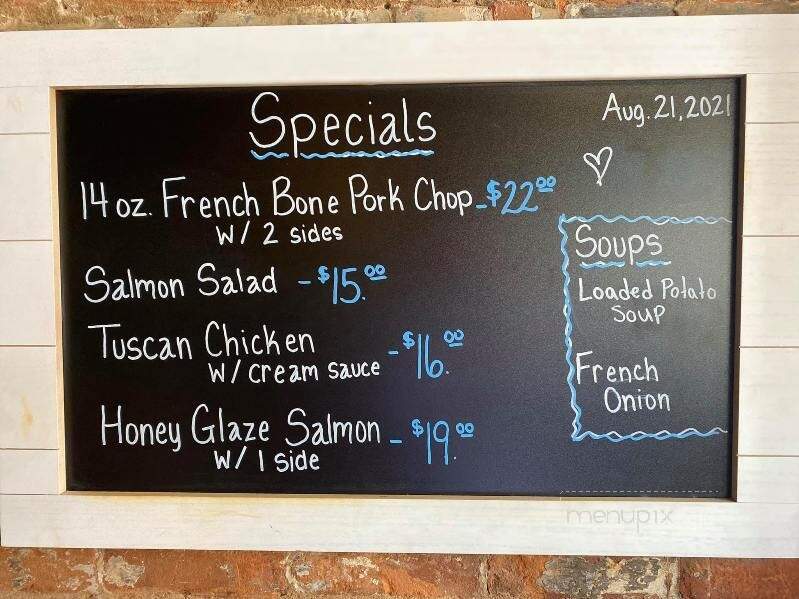 Specials
Aug. 21, 2021
14 oz. French Bone Pork Chop - $22.00
w/ 2 sides
Salmon Salad - $15.00
Tuscan Chicken - $16.00
w/ cream sauce
Honey Glaze Salmon - $19.00
w/ 1 side
Soups
Loaded Potato
Soup
French
Onion
menupix